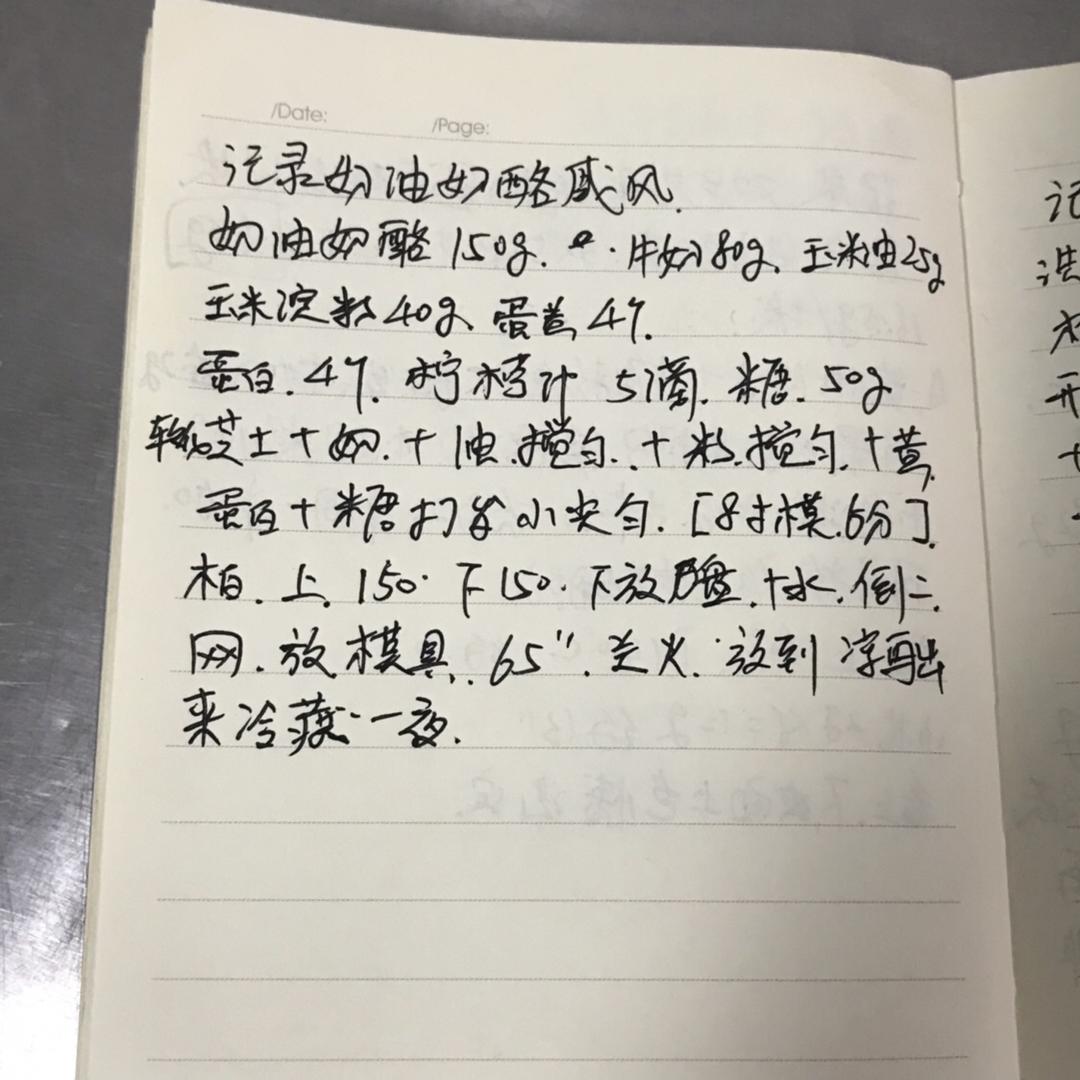 /Date: /Page:
记录奶油奶酪戚风.
奶油奶酪150g. 牛奶80g、玉米油25g
玉米淀粉40g、蛋黄4个.
蛋白.4个.柠檬汁5滴.糖.50g
软化芝士+奶.+油.搅匀.+粉.搅匀.+黄.
蛋白+糖打发小尖勾.[8寸模.6分].
柏.上.150.下150.下放烤盘.+水.倒二.
网.放模具.65".关火.放到凉再出
来冷藏一夜.
记